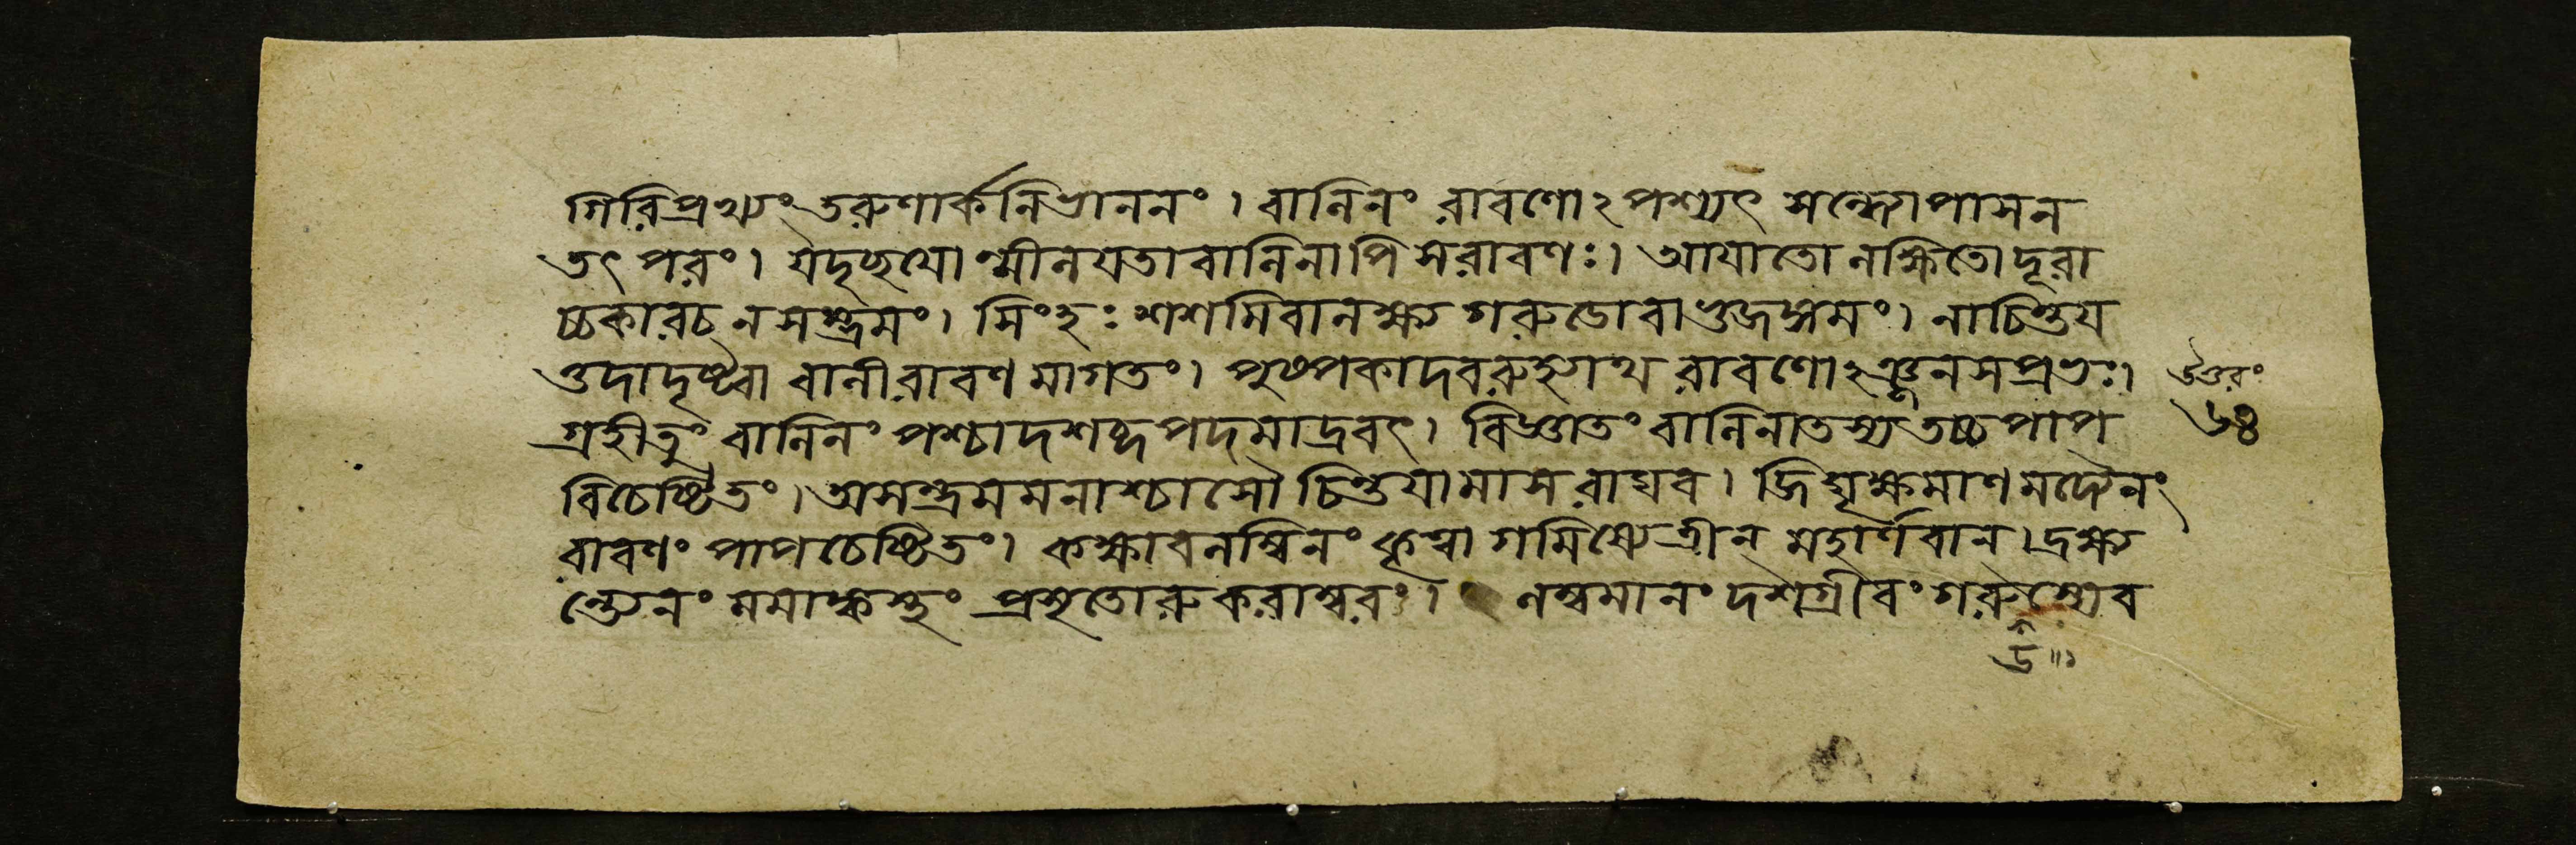 গিরিপ্রখ্যং তরুণার্কনিভাননং । বালিনং রাবণোঽপশ্যৎ সন্ধ্যোপাসন
তৎপরং । যদৃচ্ছয়োন্মীলয়তা বালিনাপি স রাবণঃ । আয়াতো লক্ষিতো দূরা
চ্চকার চ ন সম্ভ্রমং । সিংহঃ শশমিবালক্ষ্য গরুডো বা ভুজঙ্গমং । নাচিন্তয়
ত্তদা দৃষ্ট্বা বালী রাবণমাগতং । পুষ্পকাদবরুহ্যাথ রাবণোঽঞ্জনসপ্রভঃ ।
গ্রহীতুং বালিনং পশ্চাদশব্দপদমাদ্রবৎ । বিজ্ঞাতং বালিনা তস্য তচ্চ পাপ
বিচেষ্টিতং । অসম্ভ্রমমনাশ্চাসৌ চিন্তয়ামাস রাঘব । জিঘৃক্ষমাণমদ্যৈনং
রাবণং পাপচেষ্টিতং । কক্ষাবলম্বিনং কৃত্বা গমিষ্যে ত্রীন্ মহার্ণবান্ । দ্রক্ষ্য
ন্ত্যেনং মমাঙ্কস্থং প্রসৃতোরুকরাম্বরং । লম্বমানং দশগ্রীবং গরুস্যেব
উত্তরং
৬৪
ড ॥